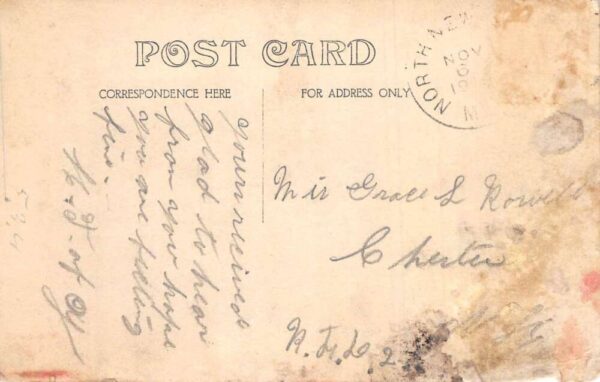 POST CARD
CORRESPONDENCE HERE
FOR ADDRESS ONLY
NORTH NEW
NOV
yours received
glad to hear
from you hope
you are feeling
fine.
Miss Grace L Rowell
Chester
R.F.D. 2